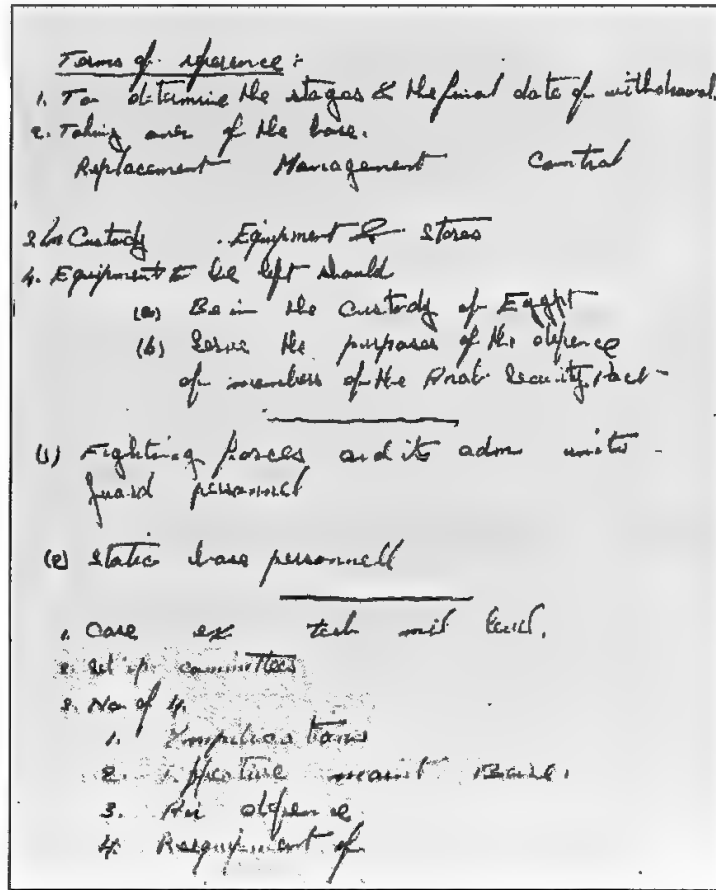 Terms of reference :
1. To determine the stages & the final date of withdrawal.
2. Taking over of the base.
Replacement Management Control
3. Custody Equipment & Stores
4. Equipment to be left should
(a) Be in the Custody of Egypt
(b) Serve the purposes of the defence
of members of the Arab Security Pact
(1) Fighting forces and its adm units
guard personnel
(2) Static base personnell
1. Case ex tech mil
2. Set up committees
3. No of 4.
1. Implications
2. Effective maint Base.
3. Air defence
4. Reequipment of